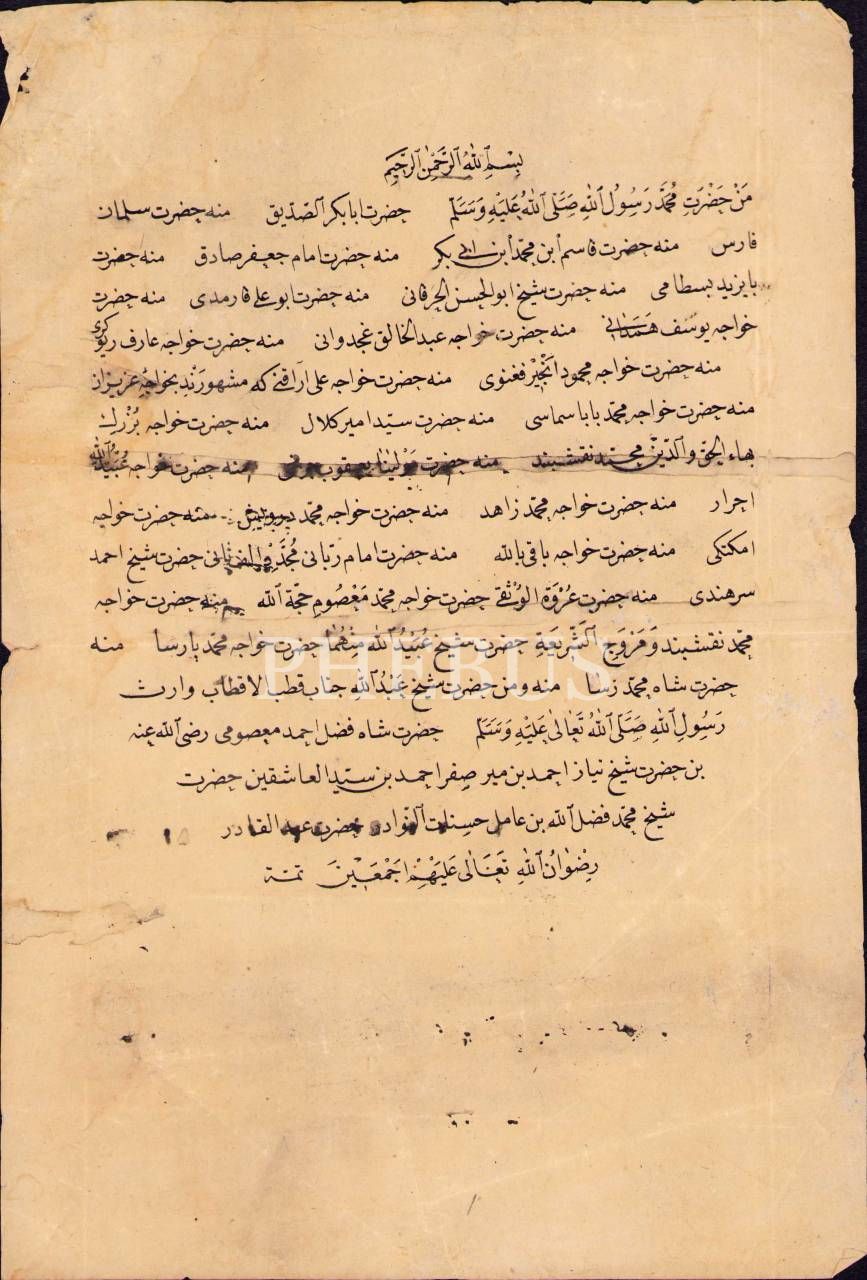 بِسْمِ اللهِ الرَّحْمٰنِ الرَّحِيمِ
مَنْ حَضْرَتِ مُحَمَّدْ رَسُولُ اللهِ صَلَّى اللهُ عَلَيْهِ وَسَلَّمْ حضرت ابا بكر الصّدّيق منه حضرت سلمان
فارس منه حضرت قاسم ابن محمّد ابن ابى بكر منه حضرت امام جعفر صادق منه حضرت
بايزيد بسطامى منه حضرت شيخ ابو الحسن الخرقانى منه حضرت ابو على فارمدى منه حضرت
خواجه يوسف همدانى منه حضرت خواجه عبد الخالق غجدوانى منه حضرت خواجه عارف ريوكرى
منه حضرت خواجه محمود انجير فغنوى منه حضرت خواجه على كه مشهورند بخواجۀ عزيزان
منه حضرت خواجه محمّد بابا سماسى منه حضرت سيّد امير كلال منه حضرت خواجه بزرك
بهاء الحق والدّين محمّد نقشبند منه حضرت مولينا يعقوب منه حضرت خواجه عُبَيْدُ الله
احرار منه حضرت خواجه محمّد زاهد منه حضرت خواجه محمّد منه حضرت خواجه
امكنكى منه حضرت خواجه باقى بالله منه حضرت امام ربّانى مُجَدِّد الف ثانى حضرت شيخ احمد
سرهندى منه حضرت عُرْوَة الوُثْقٰى حضرت خواجه محمّد مَعْصُومِ حجّة الله منه حضرت خواجه
محمّد نقشبند وَمُرَوِّج الشَّرِيعَةِ حضرت شيخ عُبَيْدُ الله مِنْهُمَا حضرت خواجه محمّد پارسا منه
حضرت شاه محمّد رسا منه ومن حضرت شيخ عَبْدُ اللهِ جناب قطب الاقطاب وارث
رَسُولِ اللهِ صَلَّى اللهُ تَعَالٰى عَلَيْهِ وَسَلَّمْ حضرت شاه فضل احمد معصومى رضى الله عنه
بن حضرت شيخ نياز احمد بن مير صفر احمد بن سيّد العاشقين حضرت
شيخ محمّد فضل الله بن عامل حسنات النّوادر حضرت عبد القادر
رِضْوَانُ اللهِ تَعَالٰى عَلَيْهِمْ اَجْمَعِينَ تمتة
PHEBUS